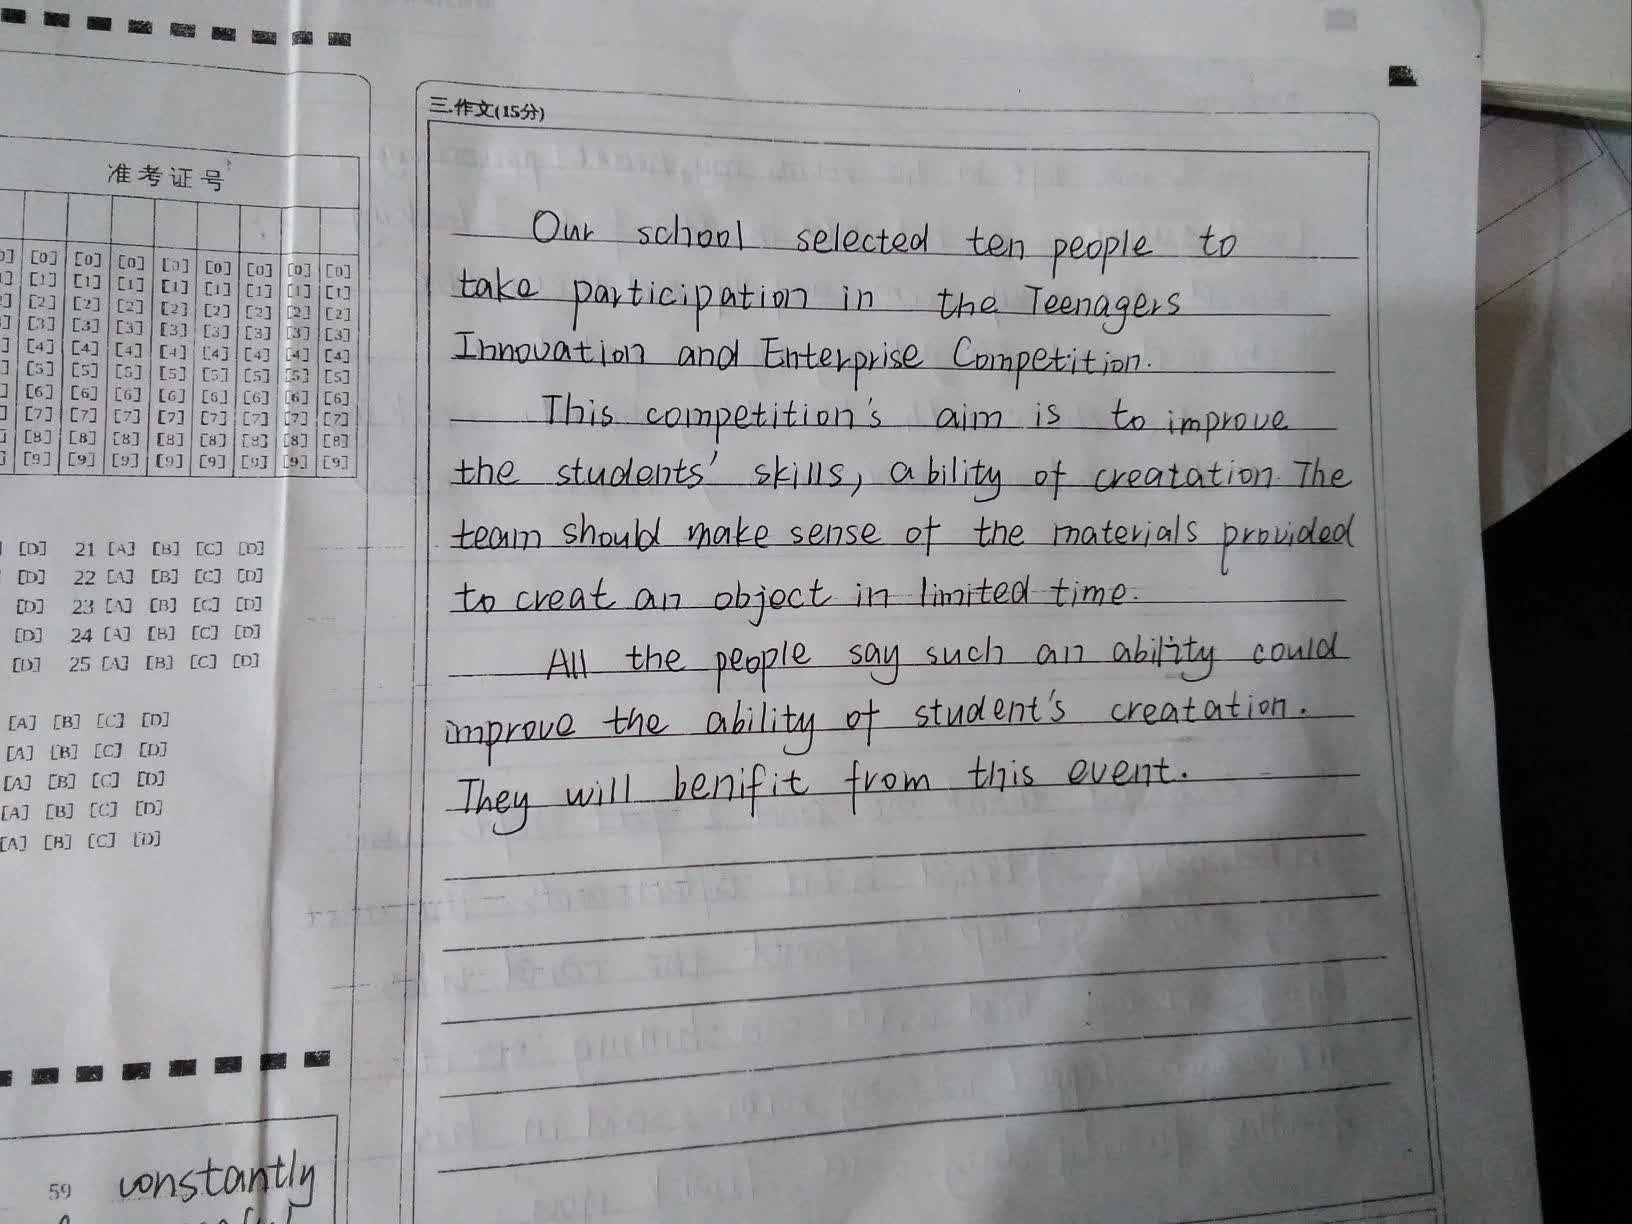 三.作文(15分)
准考证号
[0] [0] [0] [0] [0] [0] [0] [0]
[1] [1] [1] [1] [1] [1] [1] [1]
[2] [2] [2] [2] [2] [2] [2] [2]
[3] [3] [3] [3] [3] [3] [3] [3]
[4] [4] [4] [4] [4] [4] [4] [4]
[5] [5] [5] [5] [5] [5] [5] [5]
[6] [6] [6] [6] [6] [6] [6] [6]
[7] [7] [7] [7] [7] [7] [7] [7]
[8] [8] [8] [8] [8] [8] [8] [8]
[9] [9] [9] [9] [9] [9] [9] [9]
[D] 21 [A] [B] [C] [D]
[D] 22 [A] [B] [C] [D]
[D] 23 [A] [B] [C] [D]
[D] 24 [A] [B] [C] [D]
[D] 25 [A] [B] [C] [D]
[A] [B] [C] [D]
[A] [B] [C] [D]
[A] [B] [C] [D]
[A] [B] [C] [D]
[A] [B] [C] [D]
59 constantly
Our school selected ten people to
take participation in the Teenagers
Innovation and Enterprise Competition.
This competition's aim is to improve
the students' skills, ability of creatation. The
team should make sense of the materials provided
to creat an object in limited time.
All the people say such an ability could
improve the ability of student's creatation.
They will benifit from this event.